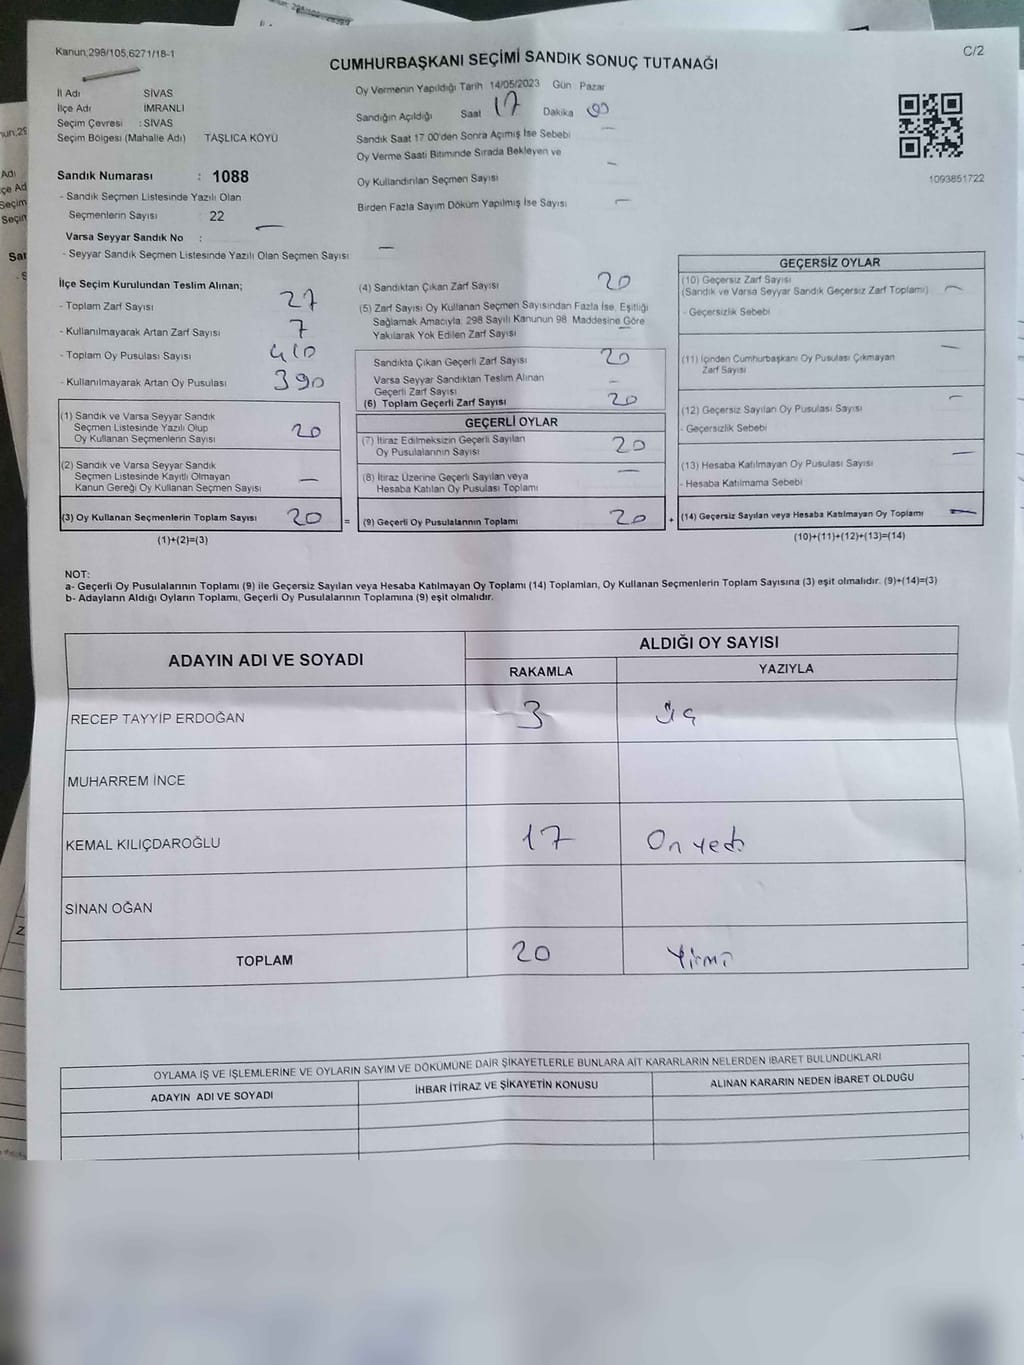 Kanun;298/105,6271/18-1
C/2
CUMHURBAŞKANI SEÇİMİ SANDIK SONUÇ TUTANAĞI
İl Adı SİVAS
İlçe Adı İMRANLI
Seçim Çevresi : SİVAS
Seçim Bölgesi (Mahalle Adı) TAŞLICA KÖYÜ
Oy Vermenin Yapıldığı Tarih 14/05/2023 Gün Pazar
Sandığın Açıldığı Saat 17 Dakika
Sandık Saat 17:00'den Sonra Açımış İse Sebebi —
Oy Verme Saati Bitiminde Sırada Bekleyen ve
Oy Kullandırılan Seçmen Sayısı —
Birden Fazla Sayım Döküm Yapılmış İse Sayısı —
1093851722
Sandık Numarası : 1088
- Sandık Seçmen Listesinde Yazılı Olan
Seçmenlerin Sayısı : 22
Varsa Seyyar Sandık No : —
- Seyyar Sandık Seçmen Listesinde Yazılı Olan Seçmen Sayısı —
İlçe Seçim Kurulundan Teslim Alınan;
- Toplam Zarf Sayısı 27
- Kullanılmayarak Artan Zarf Sayısı 7
- Toplam Oy Pusulası Sayısı 410
- Kullanılmayarak Artan Oy Pusulası 390
(1) Sandık ve Varsa Seyyar Sandık
Seçmen Listesinde Yazılı Olup
Oy Kullanan Seçmenlerin Sayısı 20
(2) Sandık ve Varsa Seyyar Sandık
Seçmen Listesinde Kayıtlı Olmayan
Kanun Gereği Oy Kullanan Seçmen Sayısı —
(3) Oy Kullanan Seçmenlerin Toplam Sayısı 20 =
(1)+(2)=(3)
(4) Sandıktan Çıkan Zarf Sayısı 20
(5) Zarf Sayısı Oy Kullanan Seçmen Sayısından Fazla İse, Eşitliği
Sağlamak Amacıyla, 298 Sayılı Kanunun 98. Maddesine Göre
Yakılarak Yok Edilen Zarf Sayısı —
Sandıkta Çıkan Geçerli Zarf Sayısı 20
Varsa Seyyar Sandıktan Teslim Alınan
Geçerli Zarf Sayısı —
(6) Toplam Geçerli Zarf Sayısı 20
GEÇERLİ OYLAR
(7) İtiraz Edilmeksizin Geçerli Sayılan
Oy Pusulalarının Sayısı 20
(8) İtiraz Üzerine Geçerli Sayılan veya
Hesaba Katılan Oy Pusulası Toplamı —
(9) Geçerli Oy Pusulalarının Toplamı 20 +
GEÇERSİZ OYLAR
(10) Geçersiz Zarf Sayısı
(Sandık ve Varsa Seyyar Sandık Geçersiz Zarf Toplamı) —
- Geçersizlik Sebebi
(11) İçinden Cumhurbaşkanı Oy Pusulası Çıkmayan
Zarf Sayısı —
(12) Geçersiz Sayılan Oy Pusulası Sayısı —
- Geçersizlik Sebebi
(13) Hesaba Katılmayan Oy Pusulası Sayısı —
- Hesaba Katılmama Sebebi
(14) Geçersiz Sayılan veya Hesaba Katılmayan Oy Toplamı —
(10)+(11)+(12)+(13)=(14)
NOT:
a- Geçerli Oy Pusulalarının Toplamı (9) ile Geçersiz Sayılan veya Hesaba Katılmayan Oy Toplamı (14) Toplamları, Oy Kullanan Seçmenlerin Toplam Sayısına (3) eşit olmalıdır. (9)+(14)=(3)
b- Adayların Aldığı Oyların Toplamı, Geçerli Oy Pusulalarının Toplamına (9) eşit olmalıdır.
ADAYIN ADI VE SOYADI
ALDIĞI OY SAYISI
RAKAMLA YAZIYLA
RECEP TAYYİP ERDOĞAN 3 üç
MUHARREM İNCE
KEMAL KILIÇDAROĞLU 17 On yedi
SİNAN OĞAN
TOPLAM 20 Yirmi
OYLAMA İŞ VE İŞLEMLERİNE VE OYLARIN SAYIM VE DÖKÜMÜNE DAİR ŞİKAYETLERLE BUNLARA AİT KARARLARIN NELERDEN İBARET BULUNDUKLARI
ADAYIN ADI VE SOYADI İHBAR İTİRAZ VE ŞİKAYETİN KONUSU ALINAN KARARIN NEDEN İBARET OLDUĞU